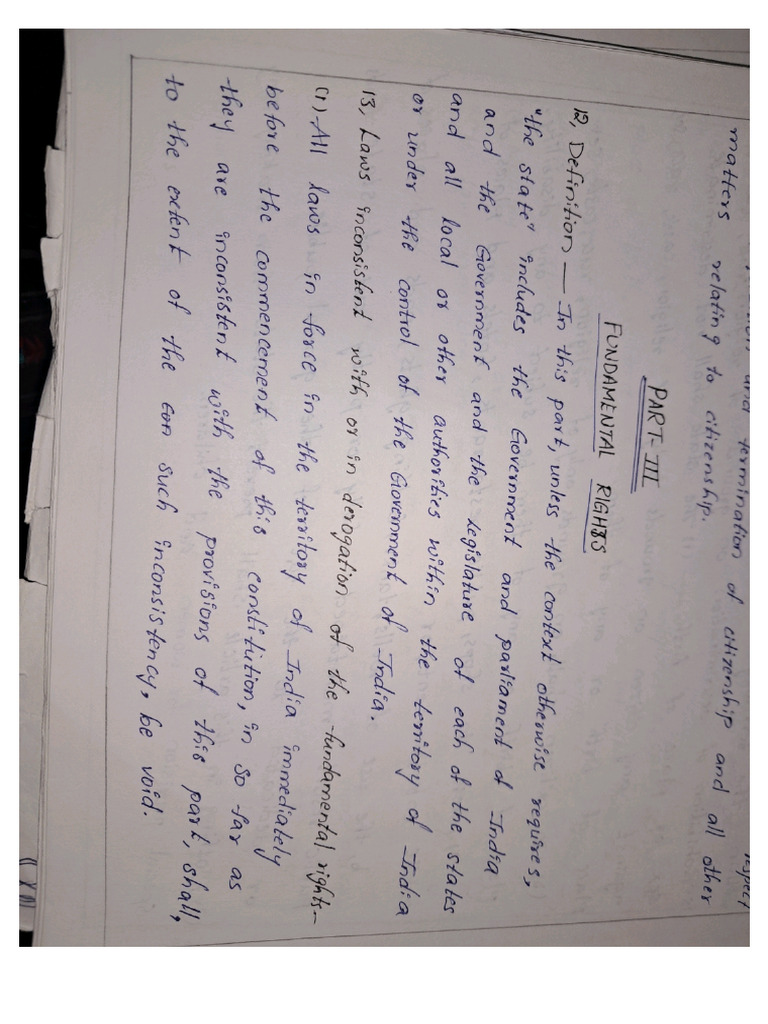 and termination of citizenship and all other
matters relating to citizenship.
PART-III
FUNDAMENTAL RIGHTS
12, Definition — In this part, unless the context otherwise requires,
"the state" includes the Government and parliament of India
and the Government and the legislature of each of the states
and all local or other authorities within the territory of India
or under the control of the Government of India.
13, Laws inconsistent with or in derogation of the fundamental rights-
(1) All laws in force in the territory of India immediately
before the commencement of this constitution, in so far as
they are inconsistent with the provisions of this part, shall,
to the extent of the such inconsistency, be void.